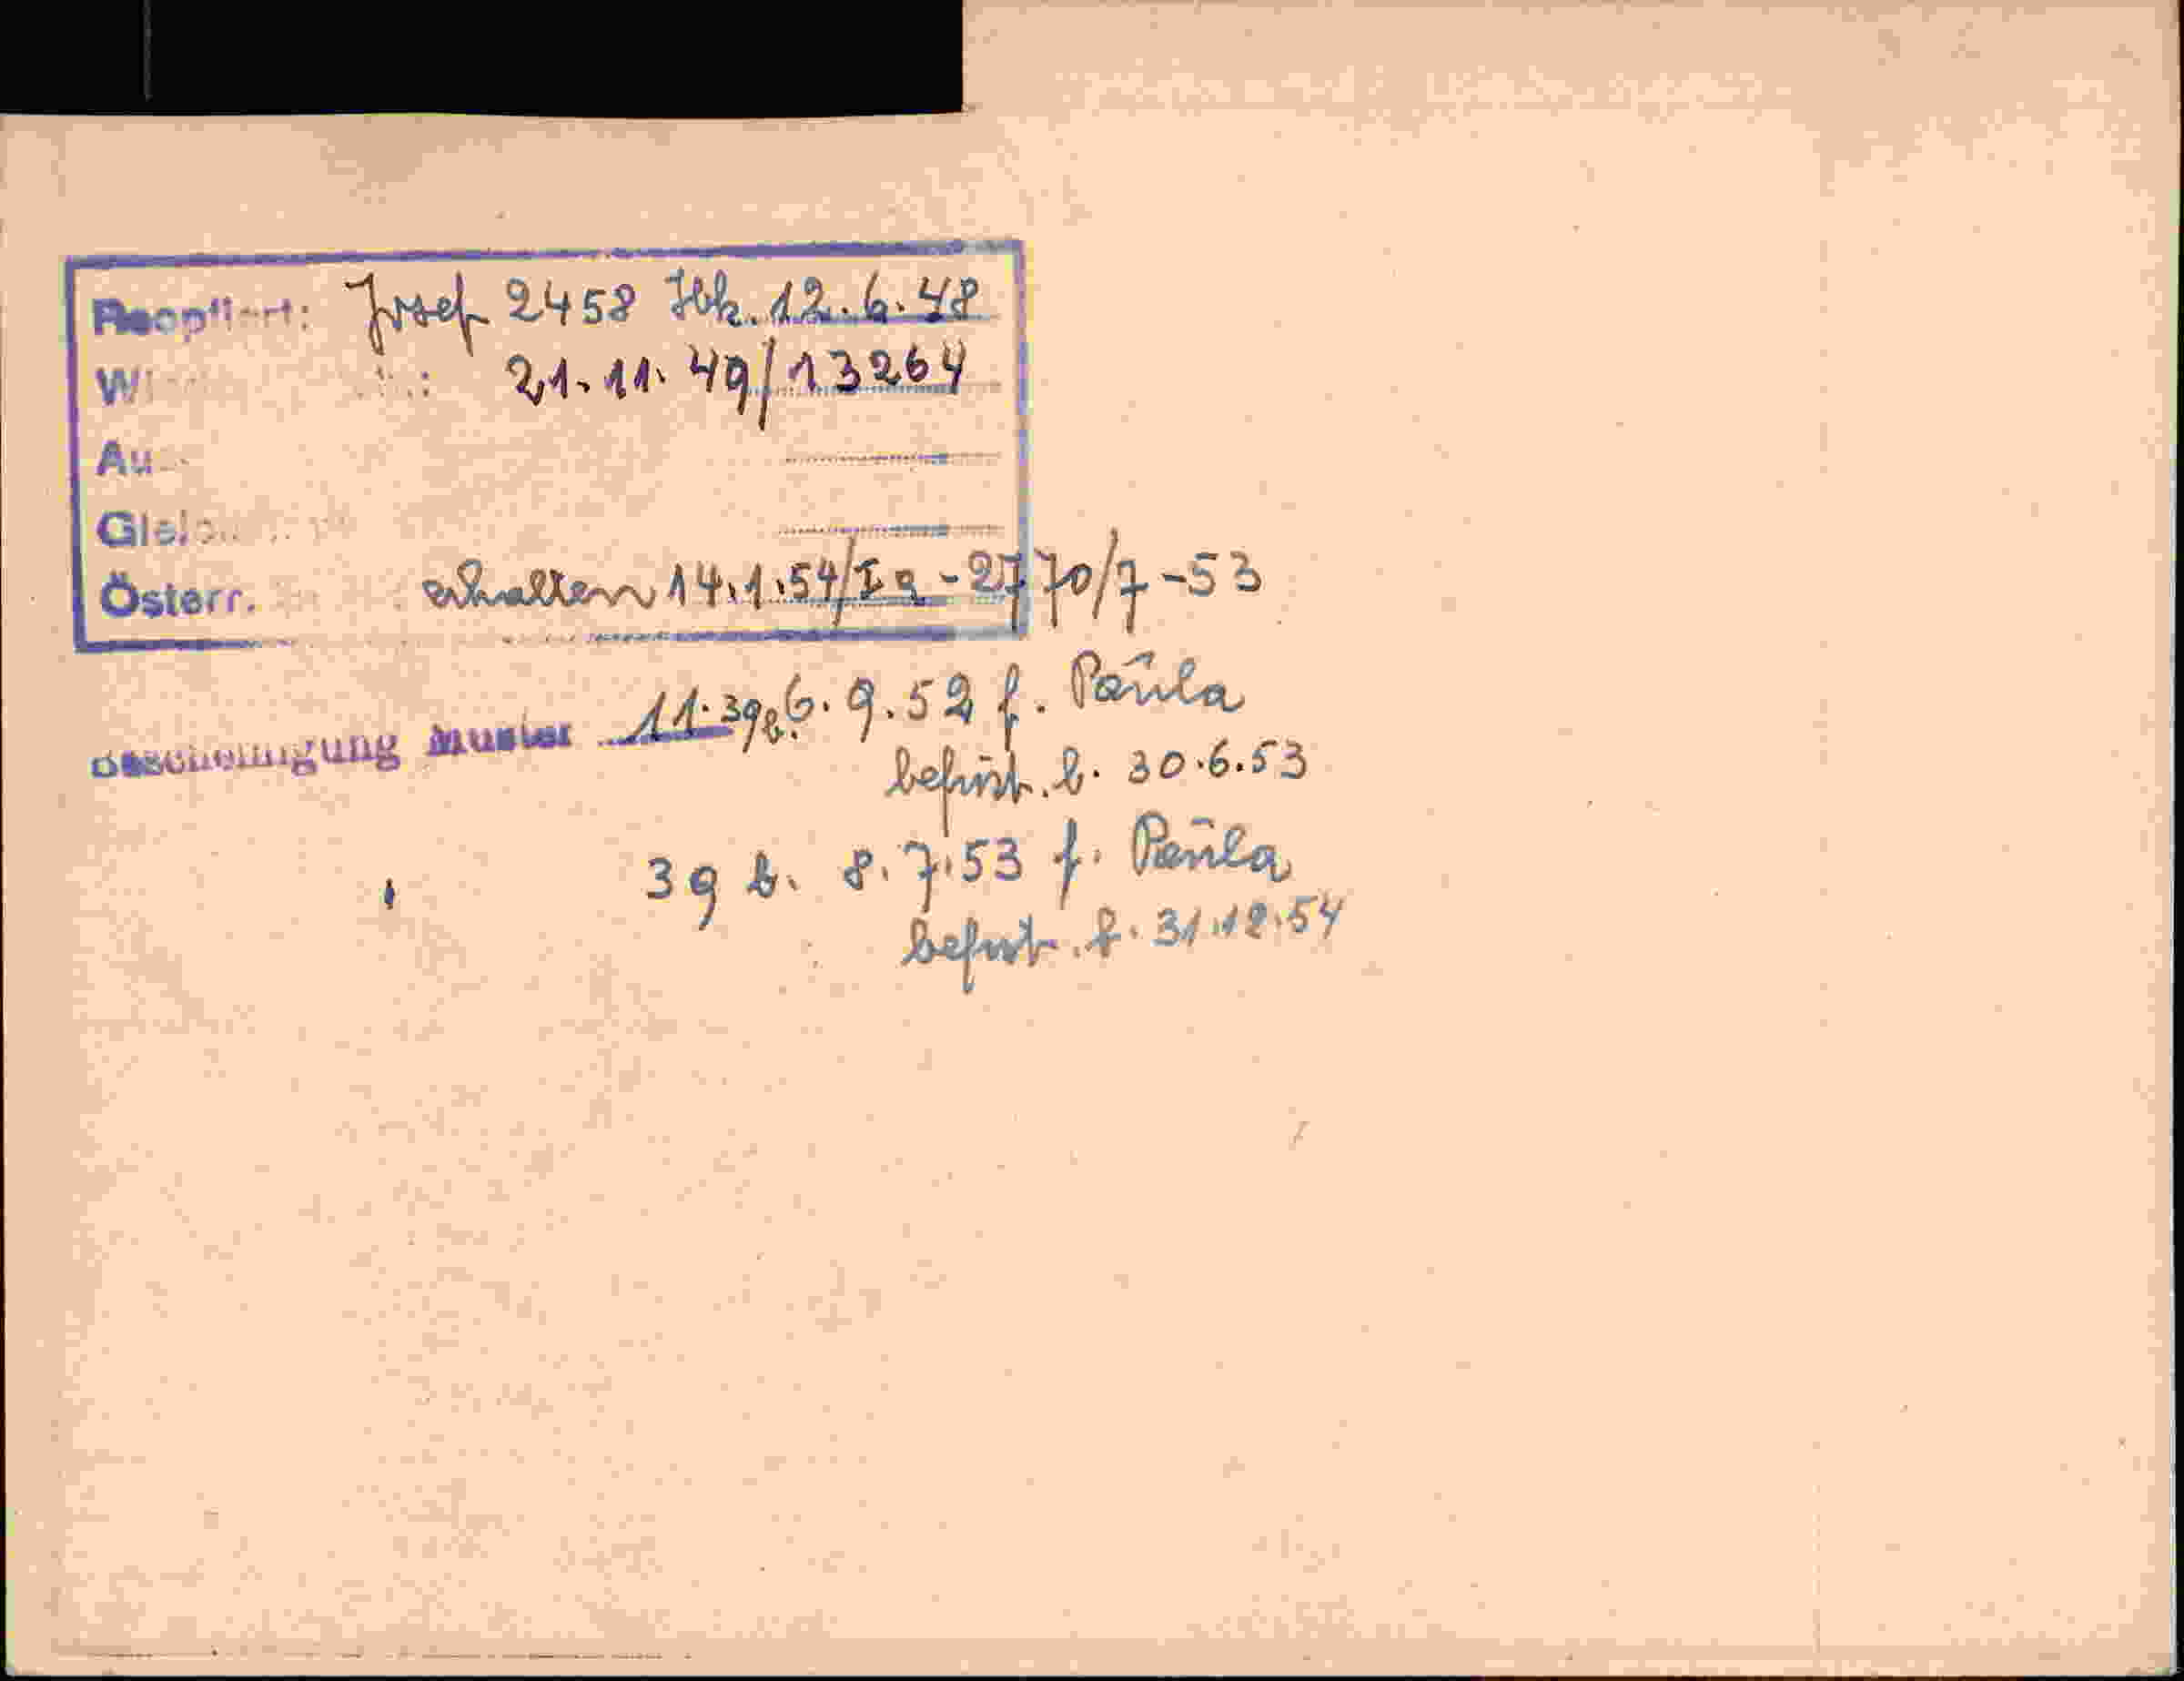 Reoptiert: Josef 2458 Ibk. 12.6.48
21.11.49/13264
Österr. erhalten 14.1.54/Ia-2770/7-53
Bescheinigung Muster 11.39b. 6.9.52 f. Paula
befrist. b. 30.6.53
39 b. 8.7.53 f. Paula
befrist. b. 31.12.54